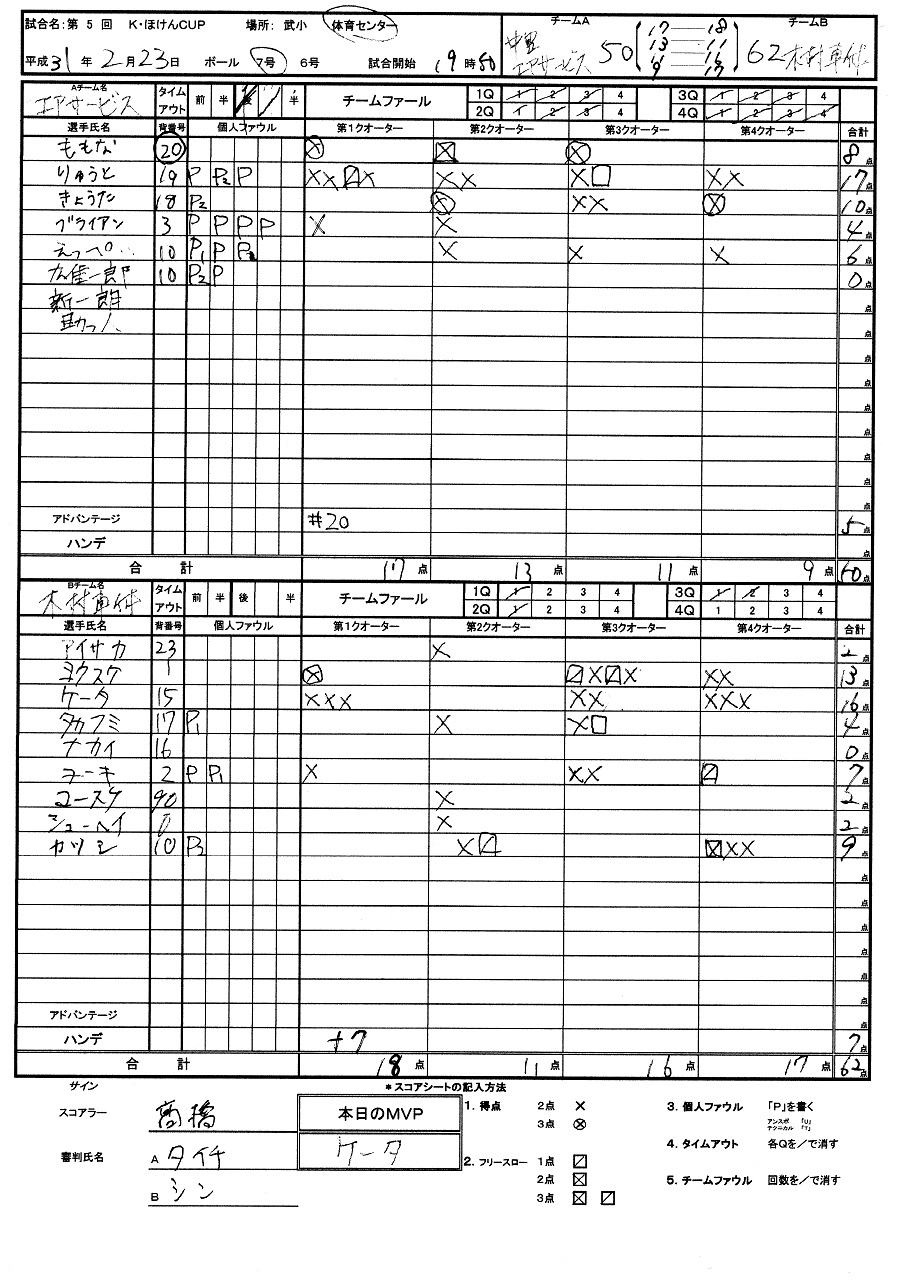 試合名:第 5 回 K・ほけんCUP 場所: 武小 体育センター
平成31 年 2月 23日 ボール 7号 6号 試合開始 19時50
チームA チームB
エアサービス 50 17 18 62 木村車体
13 11
11 16
9 17
Aチーム名 エアサービス タイムアウト 前 半 後 半 チームファール 1Q 1 2 3 4 3Q 1 2 3 4
2Q 1 2 3 4 4Q 1 2 3 4
選手氏名 背番号 個人ファウル 第1クオーター 第2クオーター 第3クオーター 第4クオーター 合計
ももな 20 8点
りゅうと 19 P P2 P XX X XX X XX 17点
きょうた 18 P2 XX 10点
ブライアン 3 P P P P X X 4点
えっぺ 10 P1 P P2 X X X 6点
10 P2 P 0点
新一朗 点
点
アドバンテージ #20 5点
ハンデ 点
合 計 17点 13点 11点 9点 50点
Bチーム名 木村車体 タイムアウト 前 半 後 半 チームファール 1Q 1 2 3 4 3Q 1 2 3 4
2Q 1 2 3 4 4Q 1 2 3 4
選手氏名 背番号 個人ファウル 第1クオーター 第2クオーター 第3クオーター 第4クオーター 合計
アイサカ 23 X 2点
ヨウスケ 1 X X XX 13点
ケータ 15 XXX XX XXX 16点
タカフミ 17 P1 X X 4点
ナカイ 16 0点
ユーキ 2 P P1 X XX 7点
コースケ 90 X 2点
シューヘイ 0 X 2点
カツシ 10 P2 X XX 9点
アドバンテージ 点
ハンデ +7 7点
合 計 18点 11点 16点 17点 62点
サイン *スコアシートの記入方法
スコアラー 高橋
審判氏名 A タイチ
B シン
本日のMVP
ケータ
1. 得点 2点 ×
3点 ⊗
2. フリースロー 1点
2点
3点
3. 個人ファウル 「P」を書く
アンスポ 「U」
テクニカル 「T」
4. タイムアウト 各Qを/で消す
5. チームファウル 回数を/で消す